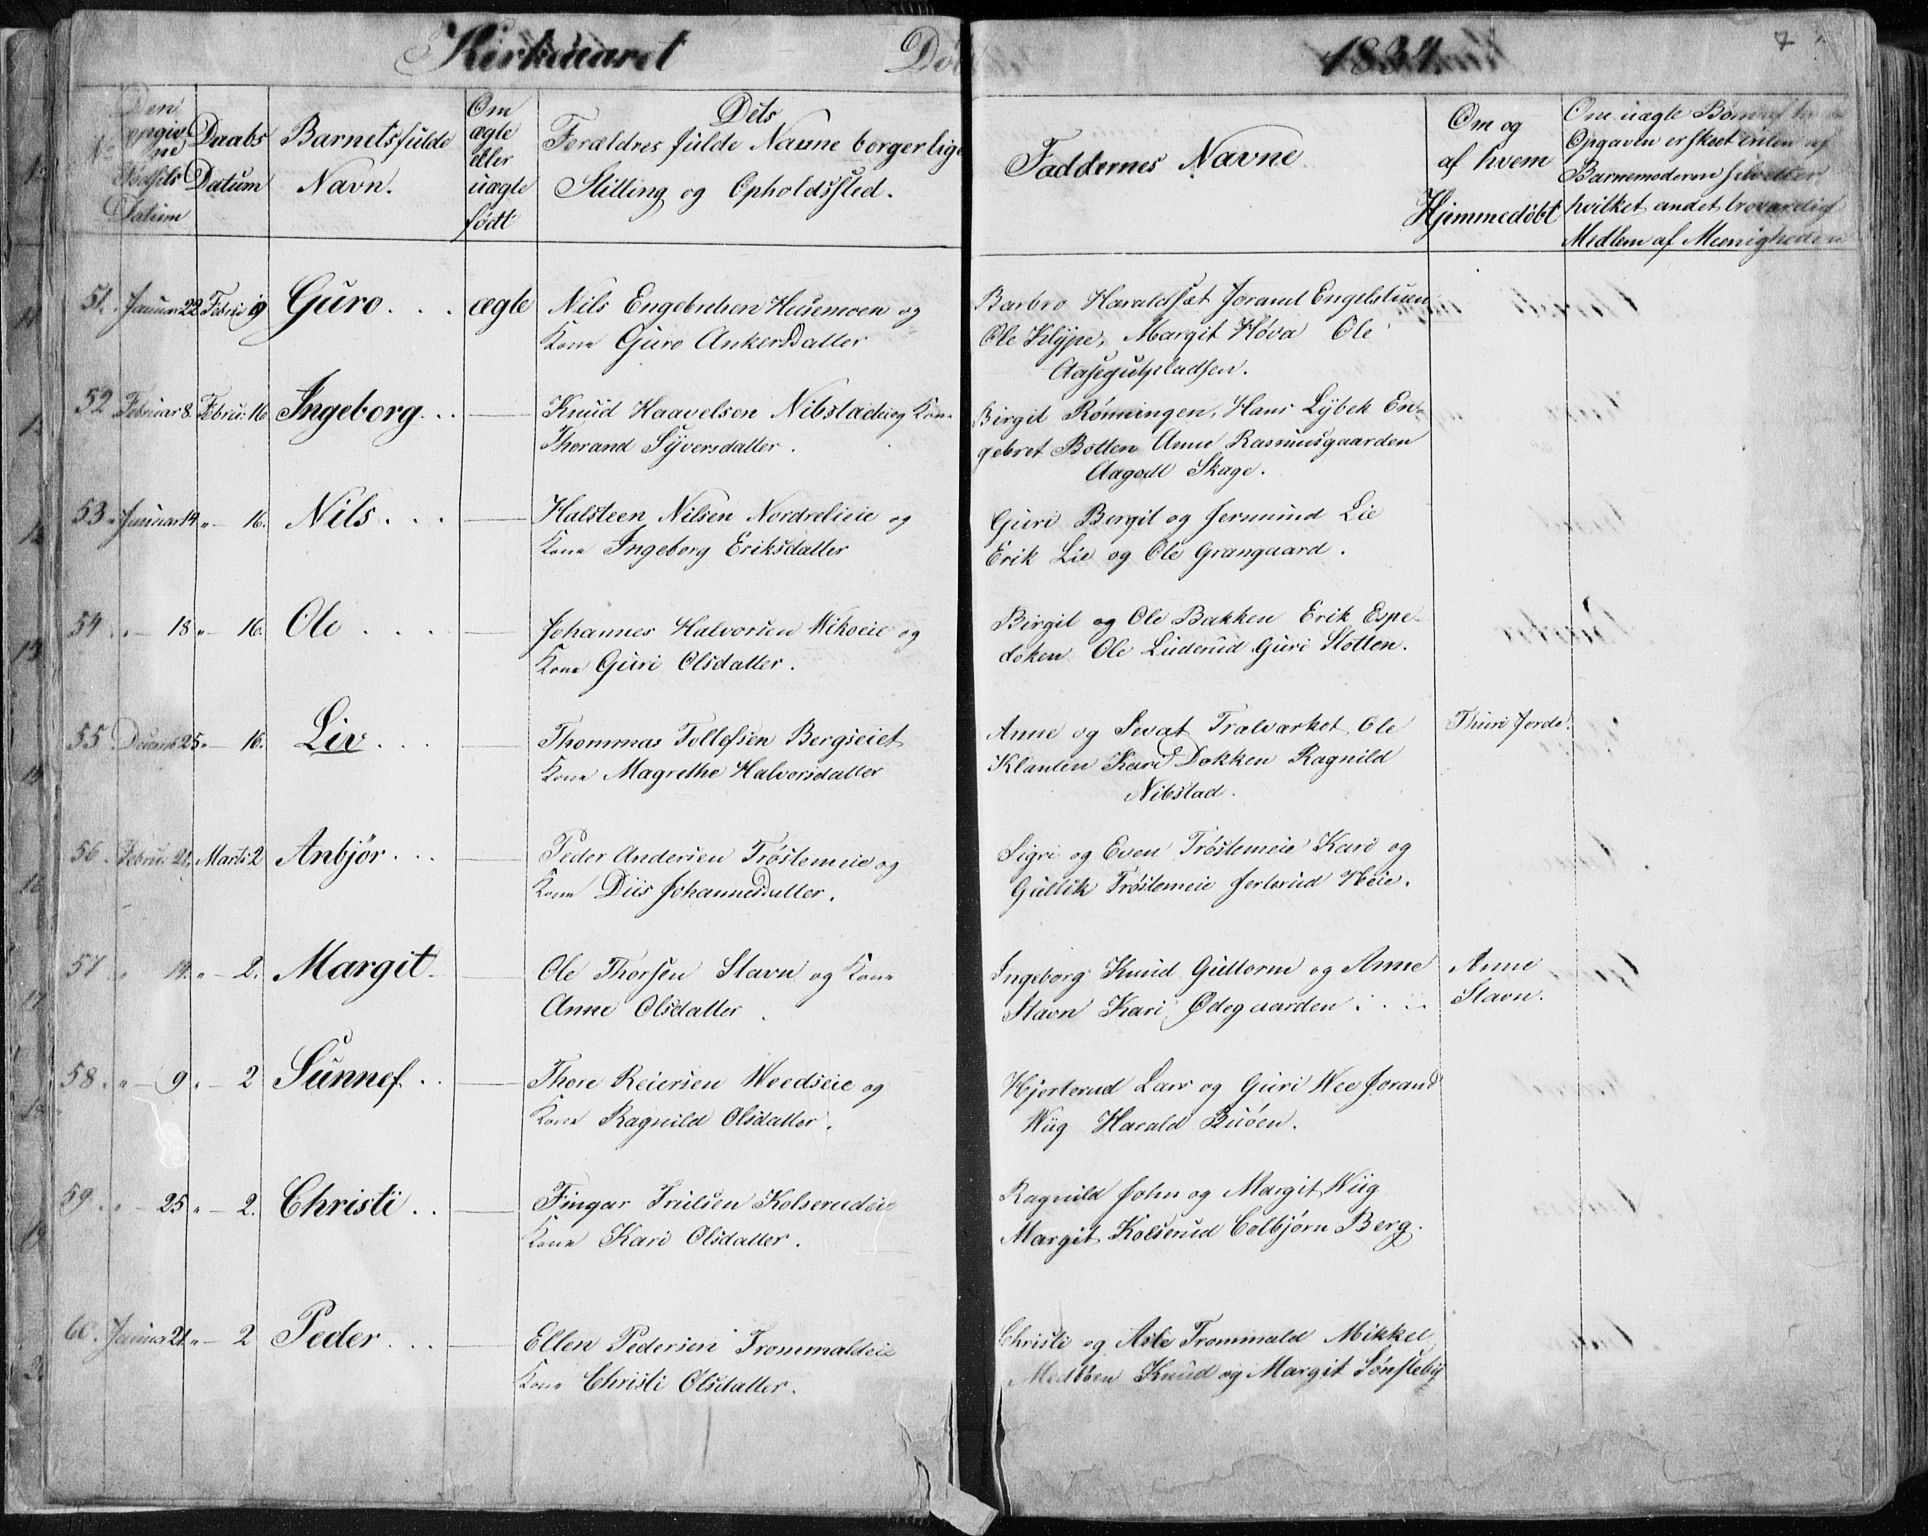 Kirkeaaret 1834. 7
No Den opgivne Fødsels Datum
Daabs Datum
Barnets fulde Navn.
Om ægte eller uægte født
Dets Forældres fulde Navne borgerlige Stilling og Opholdssted.
Faddernes Navne
Om og af hvem Hjemmedøbt
Om uægte Børns Opgaven er skeet enten af Barnemoderen selv eller hvilket andet troværdig Medlem af Meenigheden
51. Januar 22 Febru 9 Guro . . . ægte Nils Engebretsen Husemoen og
Kone Guro Ankersdatter
Barbro Haraldsæt Jorand Engelstuen
Ole Klype, Margit Høva Ole
Aasegutpladsen.
52 Februar 8. Febru. 16 Ingeborg. . . — Knud Haavelsen Nibstadeie og Kone
Thorand Syversdatter.
Birgit Rønningen, Hans Lybek En-
gebret Botten Anne Rasmusgaarden
Aagodt Skage.
53 " Januar 14 " — 16. Nils. . . — Halsteen Nilsen Nordrelieie og
Kone Ingeborg Eriksdatter
Guri Bergit og Jermund Lie
Erik Lie og Ole Grangaard.
54 " — 18 " — 16. Ole . . . — Johannes Halvorsen Wikseie og
Kone Guri Olsdatter.
Birgit og Ole Bakken Erik Espe-
doken Ole Luderud Guri Slotten.
55 Decemb 25 " — 16. Liv. . . — Thommas Tollefsen Bergseiet
Kone Magrethe Halvorsdatter
Anne og Sevat Tralvarket Ole
Klanten Kari Dokken Ragnild
Nibstad.
Thuri Jorde.
56. Febru. 21. Marts 2 Anbjør . . . — Peder Andersen Trøstemeie og
Kone Diis Johannesdatter.
Sigri og Even Trøstemeie Kari og
Gullik Trøstemeie Jerterud Heie.
57 " 14. " — 2. Margit — Ole Thorsen Stavn og Kone
Anne Olsdatter.
Ingeborg Knud Guttorm og Anne
Stavn Kari Ødegaarden . . .
Anne
Stavn.
58. " — 9. " — 2 Sunnef . . — Thore Reiersen Weedseie og
Kone Ragnild Olsdatter.
Hjorterud Lars og Guri Wee Jorand
Wiig Harald Buøen.
59 " — 25 " — 2. Christi . . — Fingar Trulsen Kolserudeie
Kone Kari Olsdatter.
Ragnild John og Margit Wiig
Margit Kolserud Colbjørn Berg.
60. Januar 21 " — 2 Peder . . . — Ellen Pedersen Trommaldeie
Kone Christi Olsdatter.
Christi og Asle Trommald Mikkel
Medbøen Knud og Margit Sønsteby